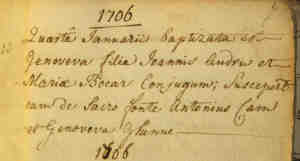 1706
Quartâ Januarii baptizata est
Genoveva filia Joannis Andris et
Mariæ Bocar Conjugum; Susceperunt
eam de Sacro fonte Antonius Cam
et Genoveva
1606